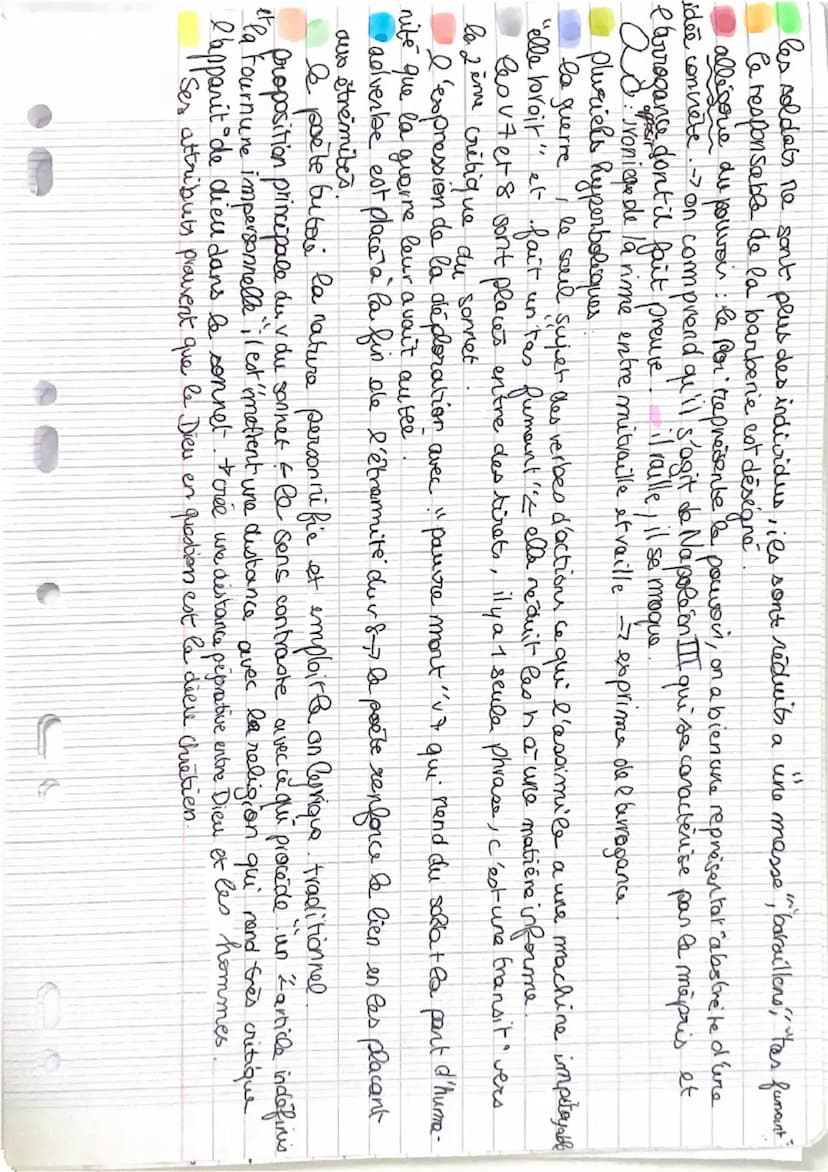 les soldats ne sont plus des individus, ils sont réduits a une masse, "bataillons", "tas fumant"
le responsable de la barbarie est désigné.
allégorie du pouvoir : le roi représente le pouvoir, on a bien une représentat° abstraite d'une
idée concrète. → on comprend qu'il s'agit de Napoléon III qui se caractérise par le mépris et
l'arrogance dont il fait preuve. il raille, il se moque.
: ironique de la rime entre mitraille et raille → exprime de l'arrogance.
pluriels hyperboliques
la guerre, le seul sujet des verbes d'actions ce qui l'assimile a une machine impitoyable
"elle broie" et "fait un tas fumant" elle réduit les h à une matière informe.
les v7 et 8 sont placés entre des tirets, il y a 1 seule phrase, c'est une transit° vers
la 2ème critique du sonnet.
l'expression de la déploration avec "pauvre mort" v7 qui rend du soldat la part d'huma-
nité que la guerre leur avait autée.
adverbe est placé à la fin de l'extremité du v8 → le poète renforce le lien en les plaçant
aux extrémités.
le poète tutoie la nature personnifie et emploit le on lyrique traditionnel.
proposition principale du v du sonnet : le sens contraste avec ce qui précède "un" article indéfinis
et la tournure impersonnelle "il est" mettent une distance avec la religion qui rend très critique
l'apparit° de dieu dans le sonnet. → crée une distance péjorative entre Dieu et les hommes.
Ses attributs prouvent que le Dieu en question est le dieu chrétien.